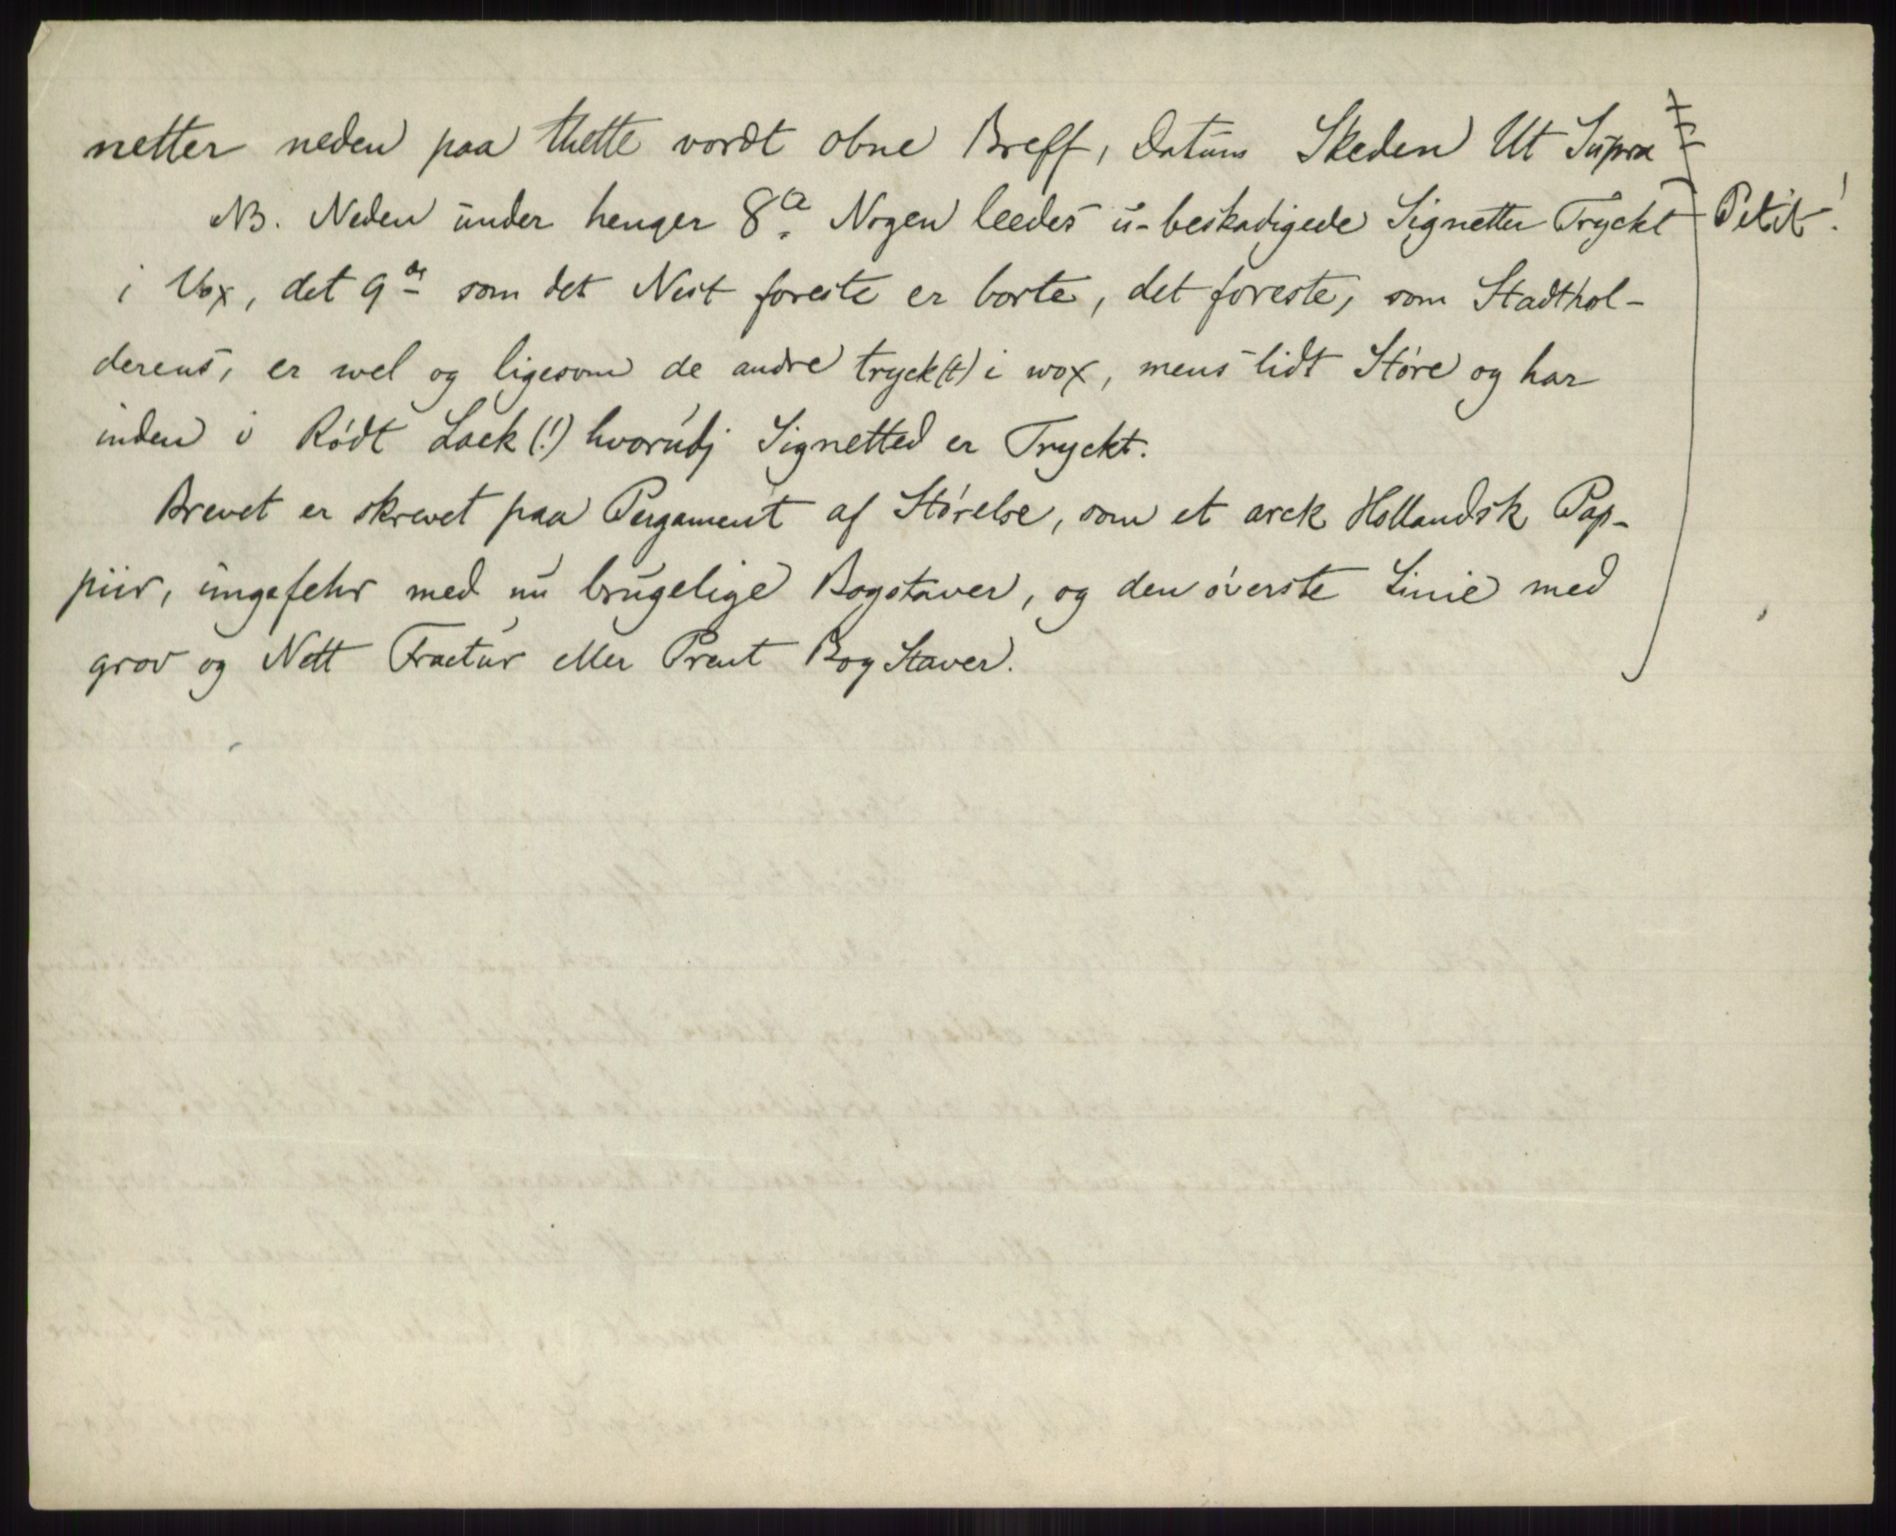 netter neden paa thette vordt obne Breff, Datum Skeden Ut Supra
NB. Neden under henger 8a Nogen leedes u-beskadigede Signetter Tryckt Petit!
i Vox, det 9de som det Nest foreste er borte, det foreste, som Stadthol-
derens, er wel og ligesom de andre tryck(t) i wox, mens lidt Støre og har
inden i Rødt Lack (!) hvorudj Signetted er Tryckt.
Brevet er skrevet paa Pergament af Størelse, som et arck Hollandsk Pap-
piir, ungefehr med nu brugelige Bogstaver, og den øverste Linie med
grov og Nett Fractur eller Prent BogStaver.